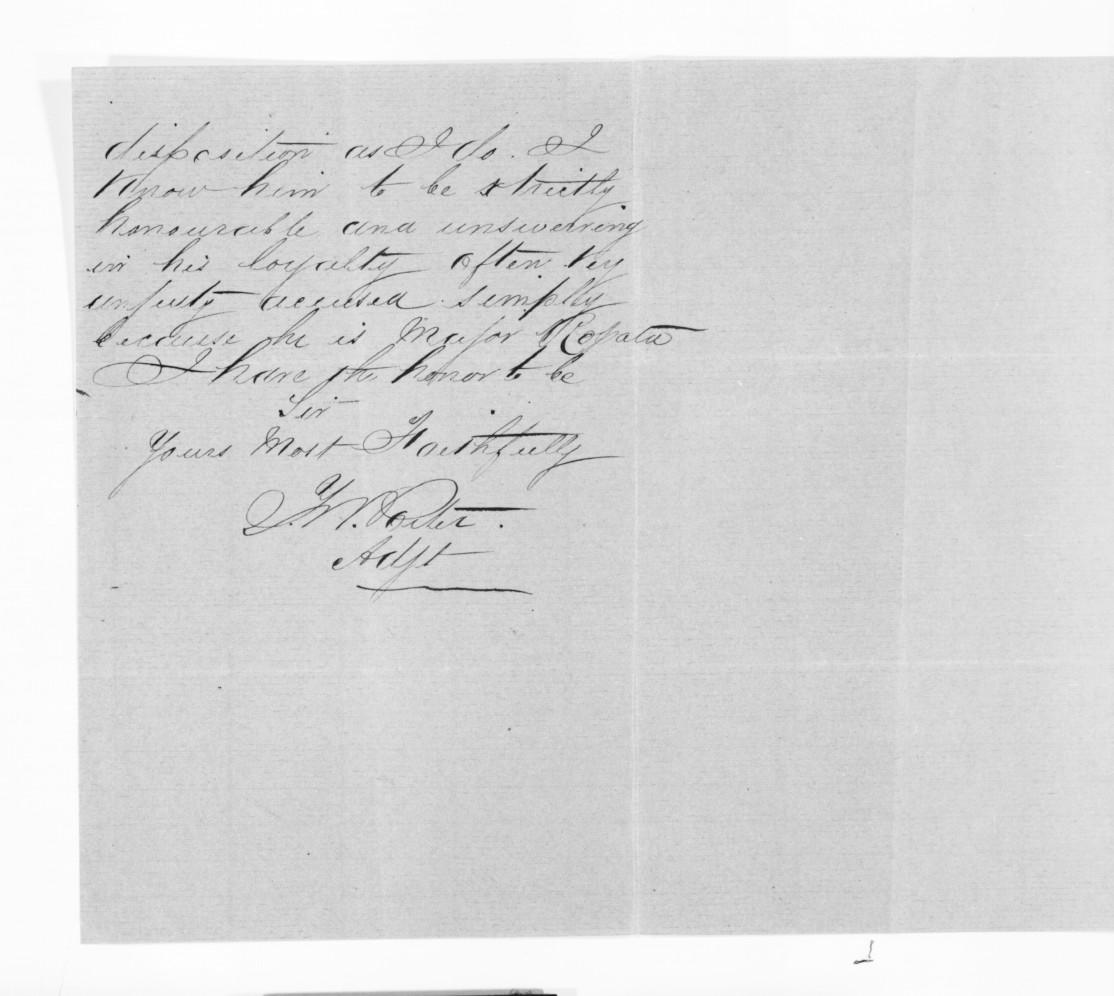 disposition as I do. I
know him to be strictly
honourable and unswerving
in his loyalty often very
unjustly accused simply
because he is Major Ropata
I have the honor to be
Sir
Yours Most Faithfully
T.W. Porter.
Adjt